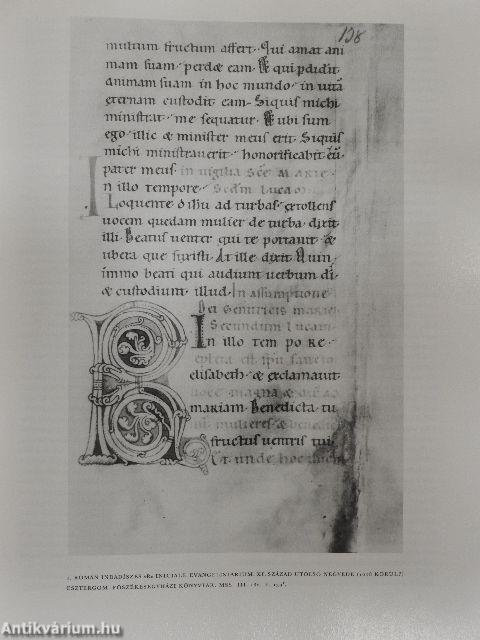 138
multum fructum affert. Qui amat ani
mam suam. perdet eam. Et qui pdidit
animam suam in hoc mundo. in uitā
eternam custodit eam. Siquis michi
ministrat. me sequatur. Et ubi sum
ego. illic & minister meus erit. Siquis
michi ministrauerit. honorificabit eū
pater meus. in uigilia Sce MARIE.
In illo tempore. Scdm Lucā
Loquente ihu ad turbas. extollens
uocem quedam mulier de turba. dixit
illi. Beatus uenter qui te portauit. &
ubera que suxisti. At ille dixit.
immo beati qui audiunt uerbum di.
& custodiunt illud. In assumptione
Dei Genitricis MARIE
Secundum Lucam.
In illo tempore.
Repleta est spu sancto
elisabeth. & exclamauit
uoce magna &
mariam. Benedicta tu
in mulieres & benedic
fructus uentris tui.
Et unde hoc michi
ROMÁN INDADÍSZES INICIÁLÉ. EVANGELISTARIUM. XI. SZÁZAD UTOLSÓ NEGYEDE
ESZTERGOM, FŐSZÉKESEGYHÁZI KÖNYVTÁR, MSS. III.
Antikvárium.hu